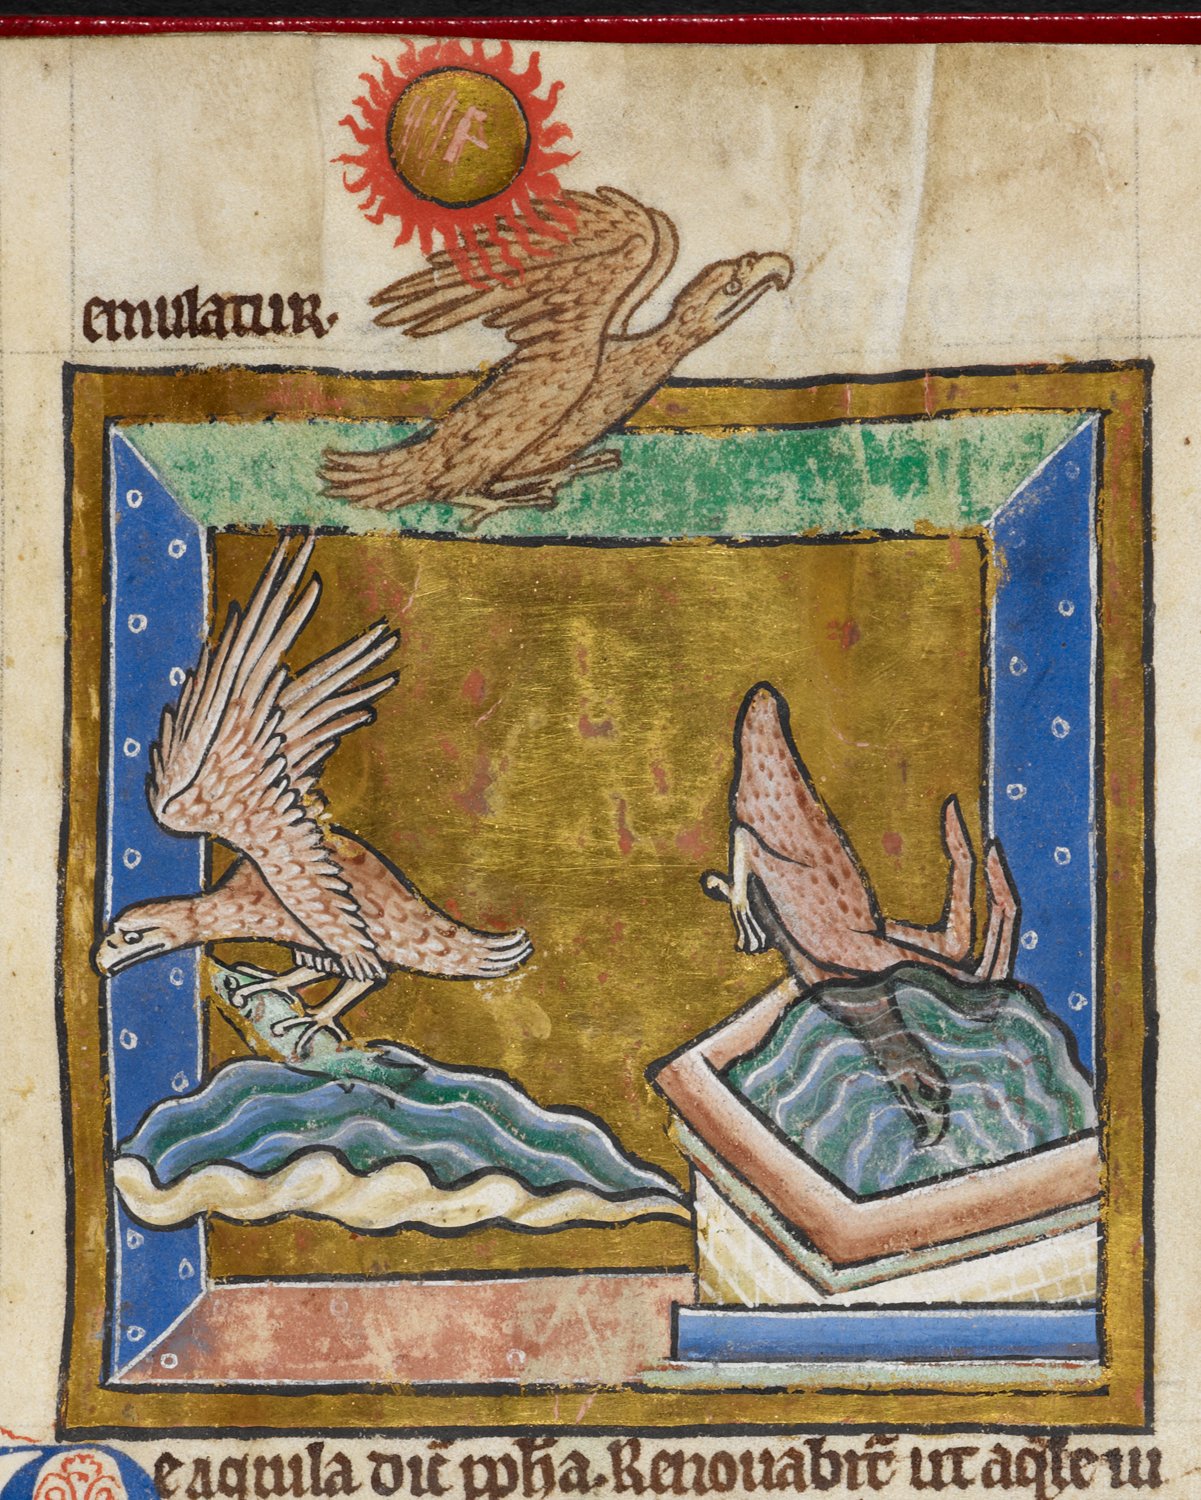 emulatur.
De aquila dic̄ pph̄a. Renouabit̄ ut aq̄le iu